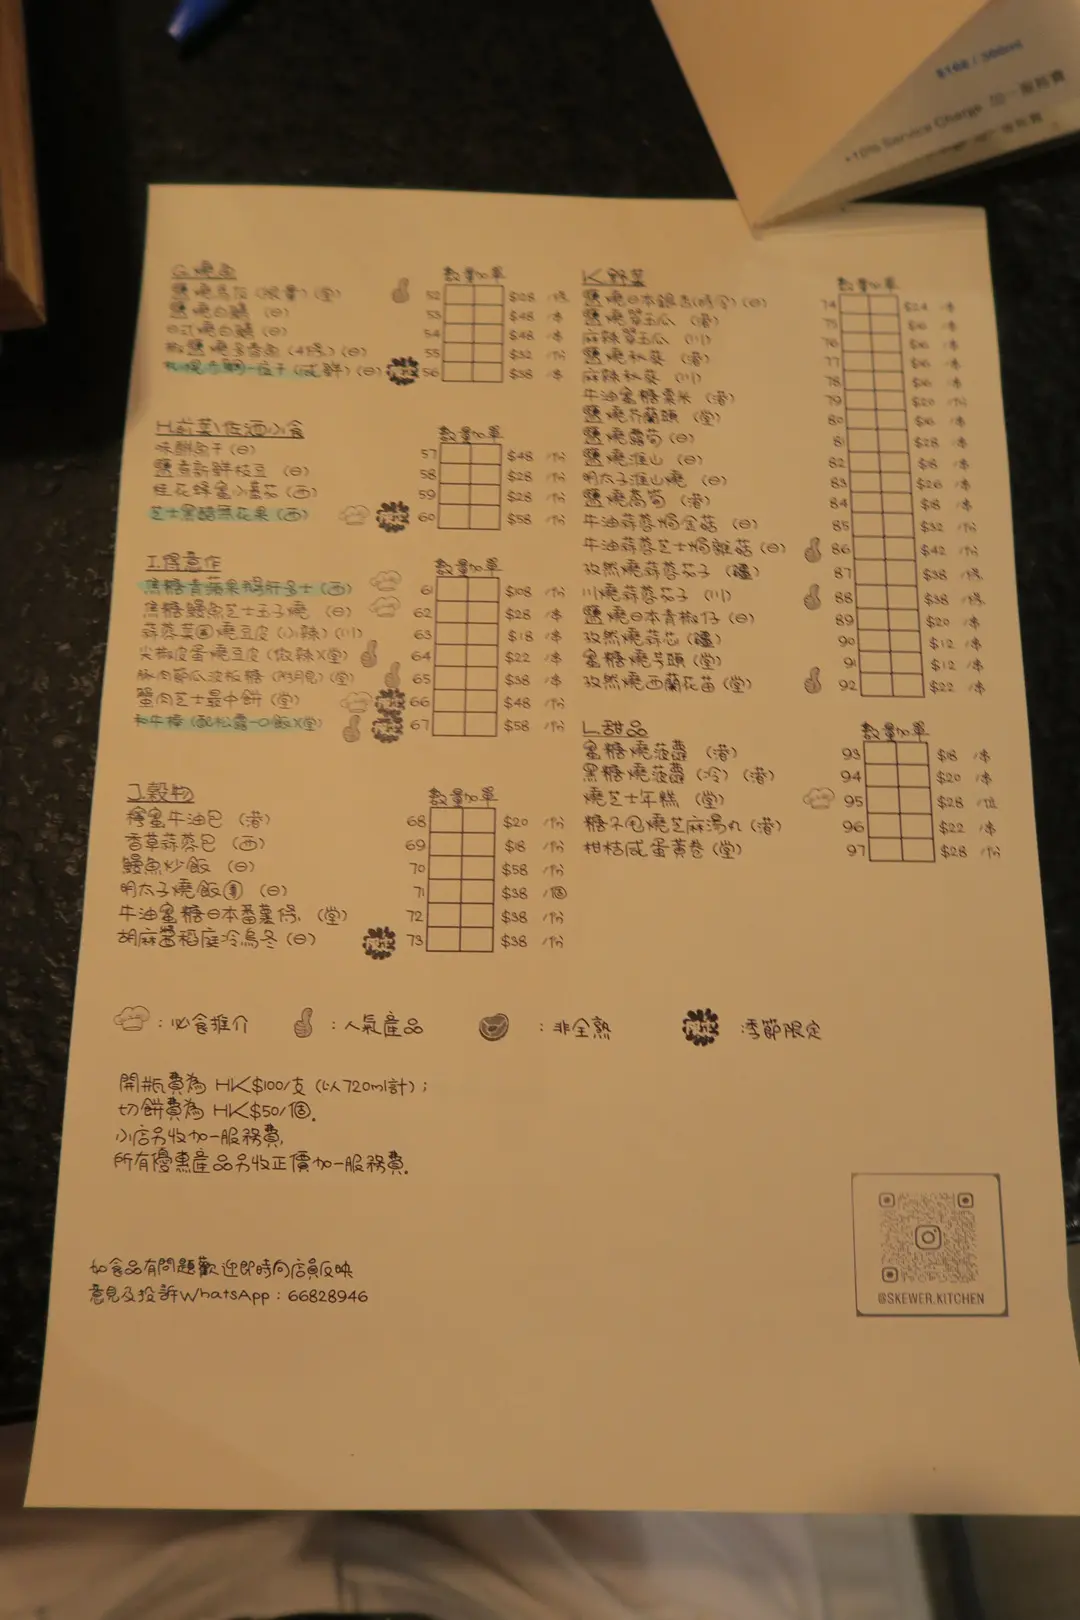 $168 / 300ml
+10% Service Charge 加一服務費
G.燒魚 數量加單
鹽燒 (限量) (堂) 52 $28 /條
鹽燒白鱔 (日) 53 $48 /串
日式燒白鱔 (日) 54 $48 /串
椒鹽燒多春魚 (4條) (日) 55 $32 /份
一夜干 (咸鮮) (日) 56 $38 /串
H.前菜\佐酒小食 數量加單
味醂魚干 (日) 57 $48 /份
鹽煮新鮮枝豆 (日) 58 $28 /份
桂花蜂蜜小蕃茄 (西) 59 $28 /份
芝士黑醋無花果 (西) 60 $58 /份
I.得意作 數量加單
焦糖青蘋果鵝肝多士 (西) 61 $108 /份
焦糖鰻魚芝士玉子燒 (日) 62 $28 /串
蒜蓉菜圃燒豆皮 (小辣) (川) 63 $18 /串
尖椒皮蛋燒豆皮 (微辣)(堂) 64 $22 /串
豚肉節瓜波板糖 (明見) (堂) 65 $38 /串
蟹肉芝士最中餅 (堂) 66 $48 /份
和牛棒 (配松露一口飯)(堂) 67 $58 /份
J.穀物 數量加單
蜂蜜牛油包 (港) 68 $20 /份
香草蒜蓉包 (西) 69 $18 /份
鰻魚炒飯 (日) 70 $58 /份
明太子燒飯糰 (日) 71 $38 /個
牛油蜜糖日本番薯條 (堂) 72 $38 /份
胡麻醬稻庭冷烏冬 (日) 73 $38 /份
K.野菜 數量加單
鹽燒日本銀杏(時令) (日) 74 $24 /串
鹽燒翠玉瓜 (港) 75 $16 /串
麻辣翠玉瓜 (川) 76 $16 /串
鹽燒秋葵 (港) 77 $16 /串
麻辣秋葵 (川) 78 $16 /串
牛油蜜糖粟米 (港) 79 $20 /份
鹽燒芥蘭頭 (堂) 80 $16 /串
鹽燒露荀 (日) 81 $28 /串
鹽燒淮山 (日) 82 $18 /串
明太子淮山燒 (日) 83 $26 /串
鹽燒萵筍 (港) 84 $18 /串
牛油蒜蓉焗金菇 (日) 85 $32 /份
牛油蒜蓉芝士焗雜菇 (日) 86 $42 /份
孜然燒蒜蓉茄子 (疆) 87 $38 /條
川燒蒜蓉茄子 (川) 88 $38 /條
鹽燒日本青椒仔 (日) 89 $20 /串
孜然燒蒜芯 (疆) 90 $12 /串
蜜糖燒芋頭 (堂) 91 $12 /串
孜然燒西蘭花苗 (堂) 92 $22 /串
L.甜品 數量加單
蜜糖燒菠蘿 (港) 93 $18 /串
黑糖燒菠蘿 (冷) (港) 94 $20 /串
燒芝士年糕 (堂) 95 $28 /位
糖不甩燒芝麻湯丸 (港) 96 $22 /串
柑桔咸蛋黃卷 (堂) 97 $28 /份
:必食推介 :人氣產品 :非全熟 :季節限定
開瓶費為 HK$100/支 (以720ml計);
切餅費為 HK$50/個.
小店另收加一服務費.
所有優惠產品另收正價加一服務費.
如食品有問題歡迎即時向店員反映
意見及投訴WhatsApp : 66828946
@SKEWER.KITCHEN